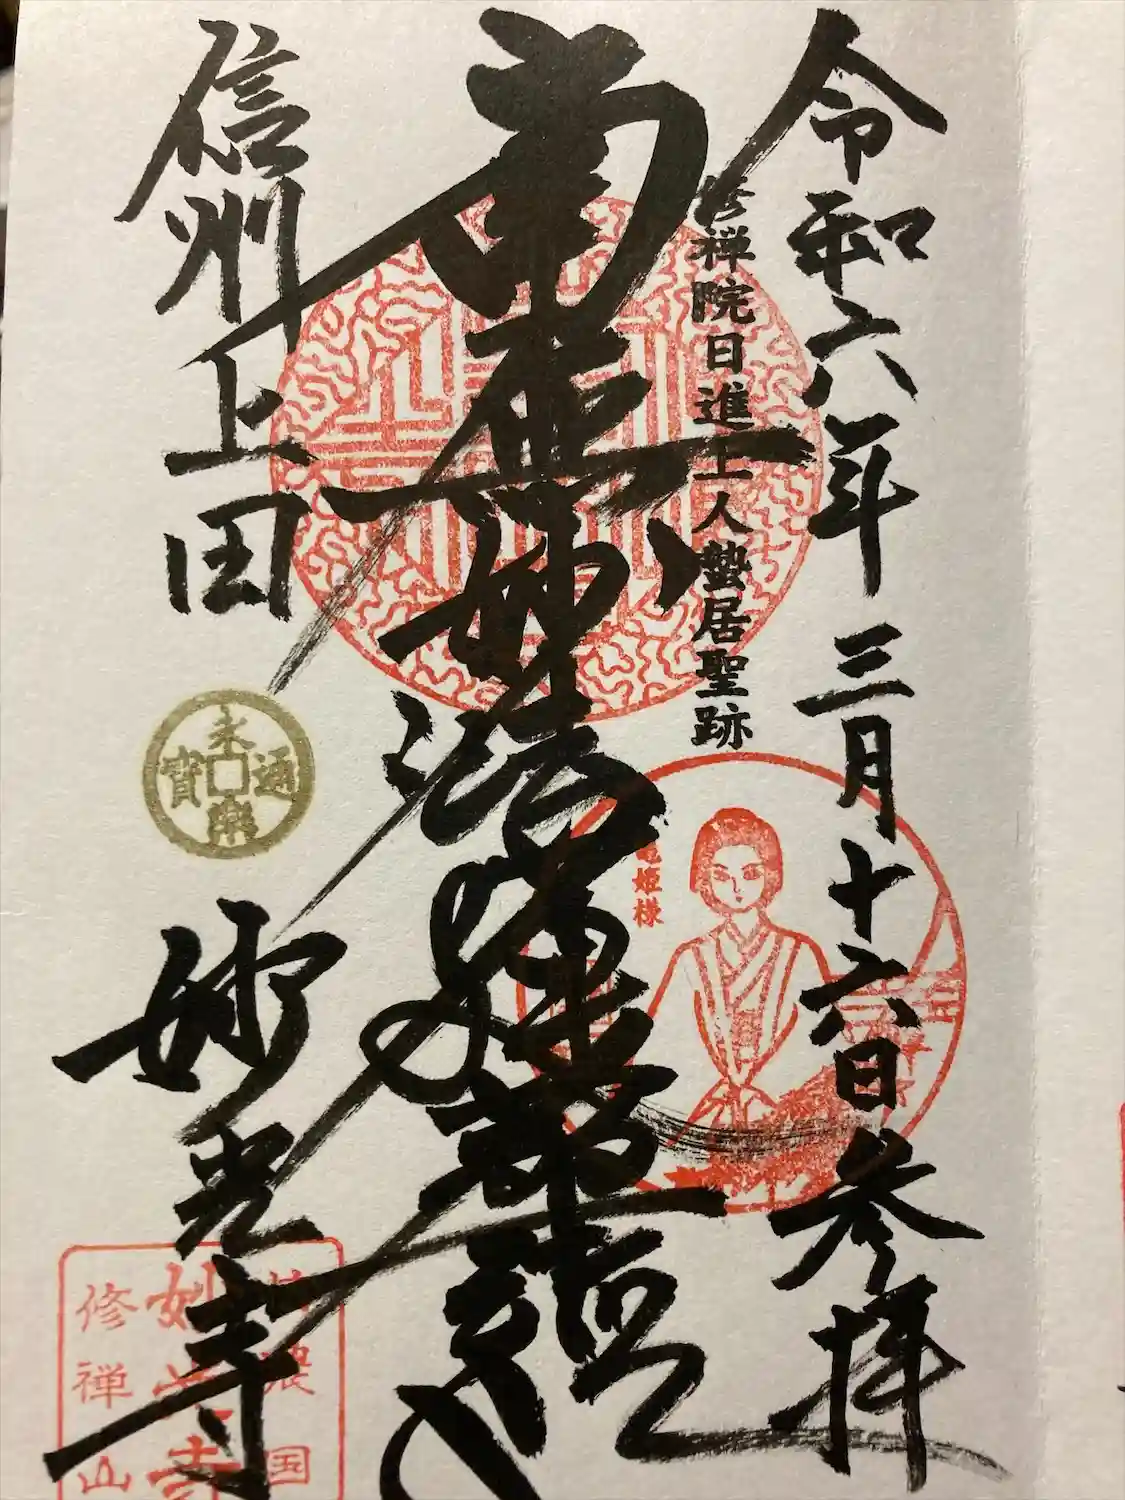 令和六年三月十六日参拝
修禅院日進上人蟄居聖跡
南無妙法蓮華経
竜姫様
信州上田
永楽通寳
妙光寺
国
妙光寺
修禅山